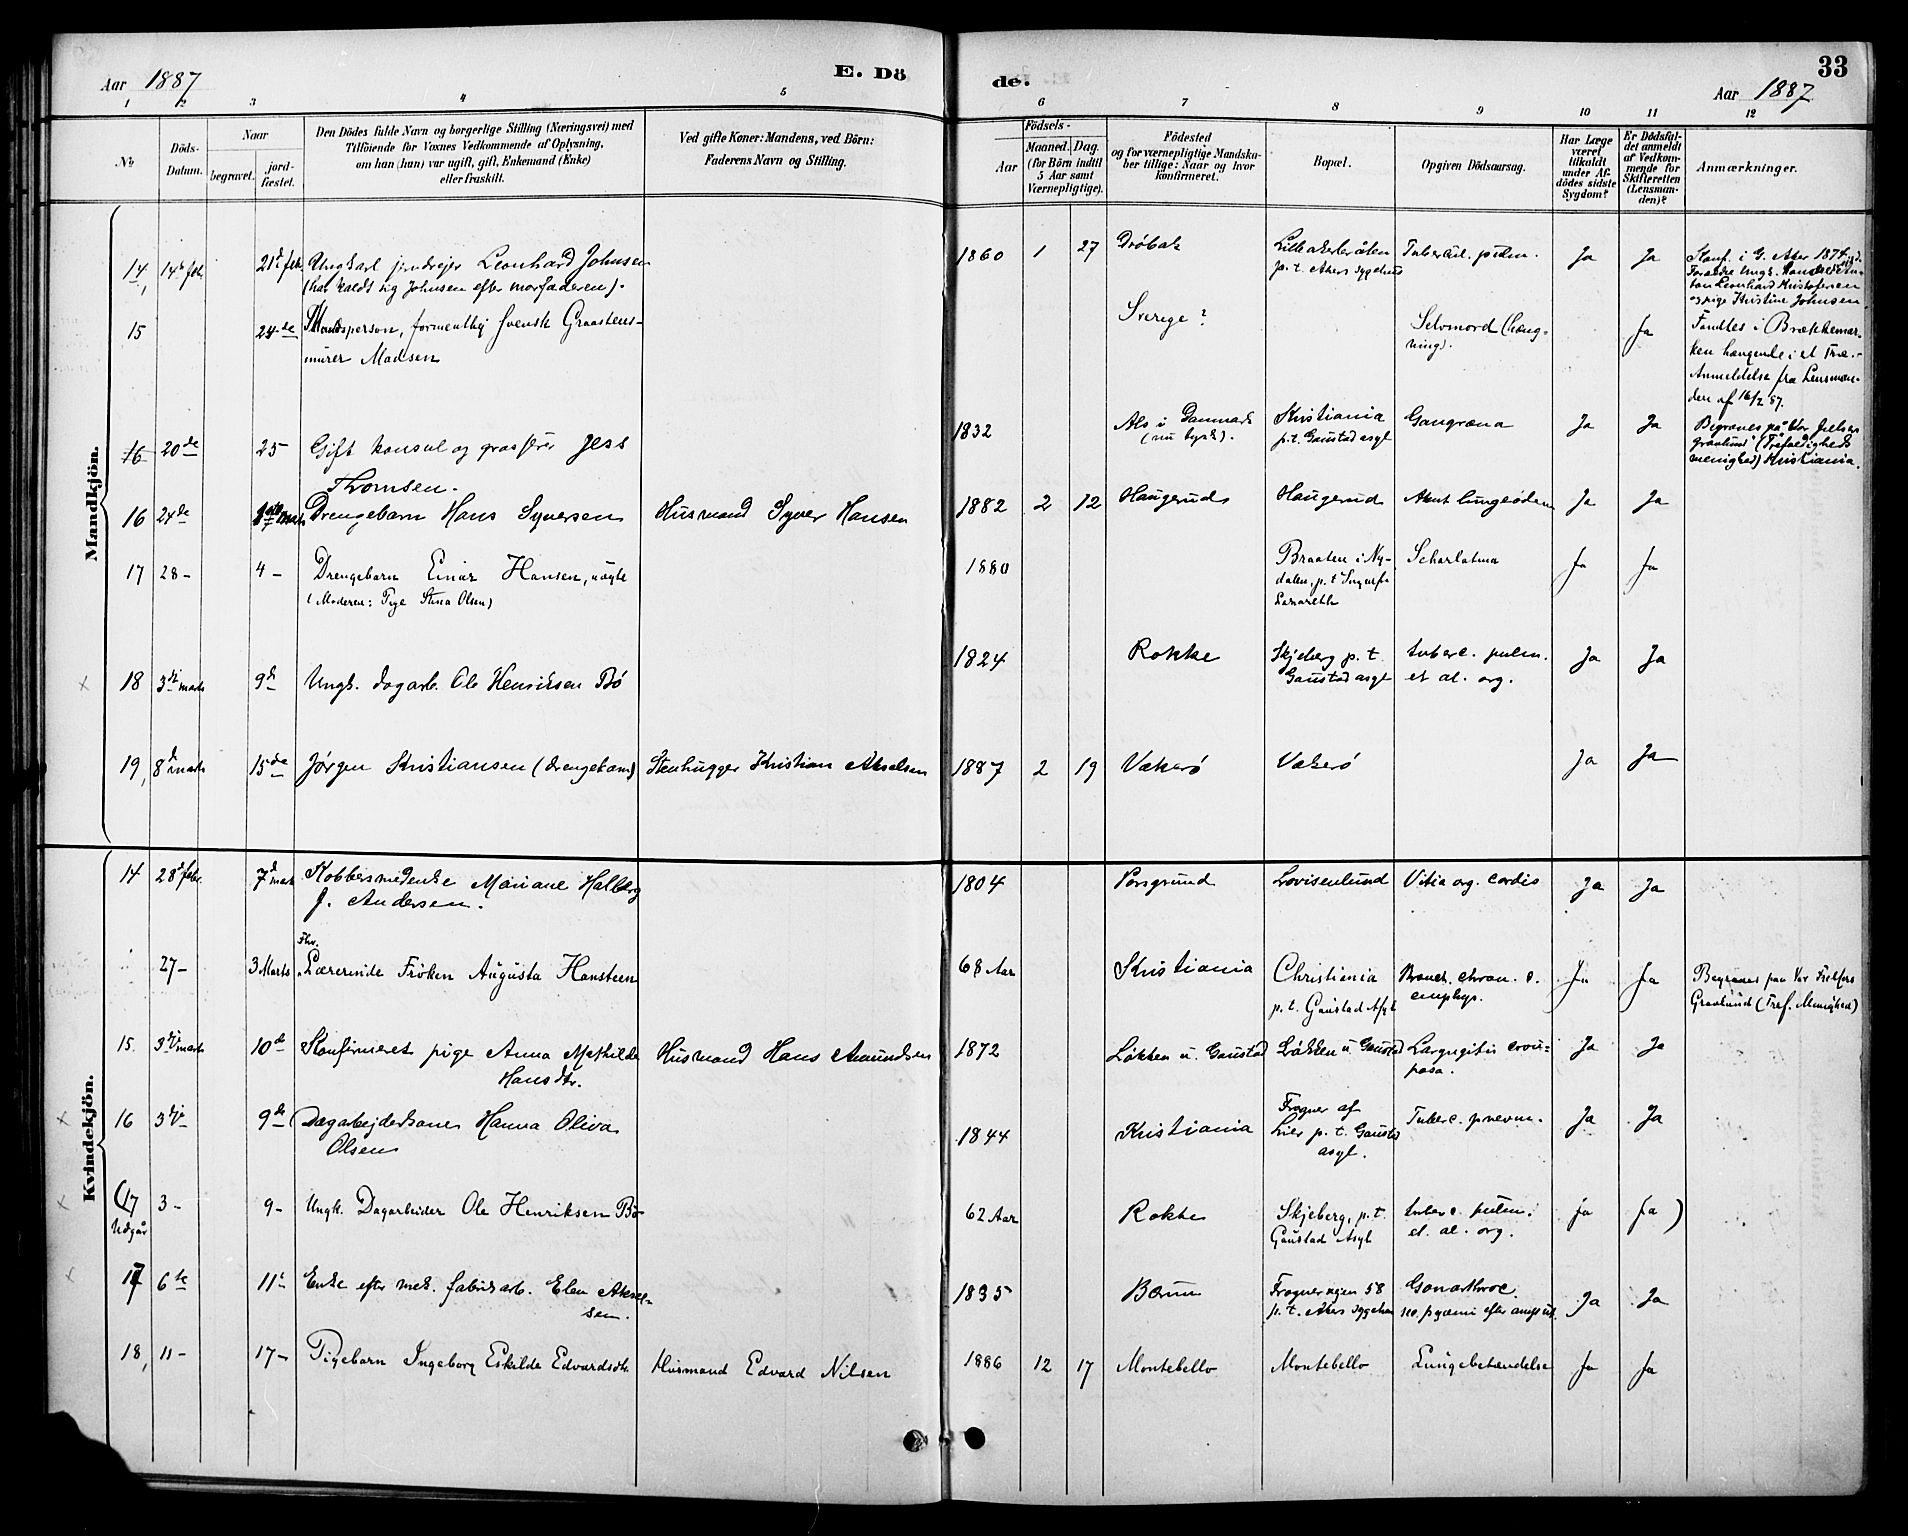 Aar 1887
E. Dö
de.
33
Aar 1887
1 2 3 4 5
6 7 8 9 10 11 12
No
Döds-
Datum.
Naar
begravet.
jord-
fæstet.
Den Dödes fulde Navn og borgerlige Stilling (Næringsvei) med
Tilföiende for Voxnes Vedkommende af Oplysning,
om han (hun) var ugift, gift, Enkemand (Enke)
eller fraskilt.
Ved gifte Koner: Mandens, ved Börn:
Faderens Navn og Stilling.
Födsels-
Aar
Maaned. Dag.
(for Börn indtil
5 Aar samt
Værnepligtige).
Födested
og for værnepligtige Mandska-
ber tillige: Naar og hvor
konfirmeret.
Bopæl.
Opgiven Dödsaarsag.
Har Læge
været
tilkaldt
under Af-
dödes sidste
Sygdom?
Er Dödsfal-
det anmeldt
af Vedkom-
mende for
Skifteretten
(Lensman-
den)?
Anmærkninger.
Mandkjön.
14, 14de febr. 21de febr. Ungkarl jerndrejer Leonhard Johnsen
(har kaldt sig Johnsen efter morfaderen).
1860 1 27 Drøbak
Lilleakerbråten
p. t. Akers sygehus
Tubercul. pulm. Ja Ja
Konf. i G. Aker 1874
Forældre Ungk.
Leonhard Kristofersen
og pige Kristine Johnsen
15 24de Mandsperson, formentlig svensk Graastens-
murer Madsen
Sverige?
Selvmord (hæng-
ning).
Ja
Fandtes i Brækkemar-
ken hængende i et Træ.-
Anmeldelse fra Lensman-
den af 16/2 87.
16 20de 25 Gift konsul og grosserer Jess
Thomsen.
1832 Als i Danmark
(nu tysk).
Kristiania
p. t. Gaustad asyl
Gangræna Ja Ja
Begraves på Vor frelsers
gravlund (Trefoldigheds
menighed) Kristiania.
16 24de 1ste marts Drengebarn Hans Syversen Husmand Syver Hansen
1882 2 12 Haugerud Haugerud Akut lungeødem Ja Ja
17 28- 4- Drengebarn Einar Hansen, uægte
(Moderen: Pige Stina Olsen)
1880
Braaten i Ny-
dalen, p. t.
Lazareth
Scharlatina Ja Ja
18 3die marts 9de Ungk. dagarb. Ole Henriksen Bö
1824 Rokke Skjeberg p. t.
Gaustad asyl
tuberc. pulm.
et al. org.
Ja Ja
19, 8de marts 15de Jørgen Kristiansen (drengebarn) Stenhugger Kristian Akselsen
1887 2 19 Vækerö Vækerö Ja Ja
Kvindekjön.
14 28de febr. 7de marts Kobbersmedenke Mariane Halberg
f. Andersen.
1804 Porsgrund Lovisenlund Vitia org. cordis Ja Ja
27- 3 Marts Fhv.
Lærerinde Frøken Augusta Hansteen
68 Aar Kristiania Christiania
p. t. Gaustad Asyl
Bronch. chron. c.
emphys.
Ja Ja
Begraves paa Vor Frelsers
Gravlund (Tref. Menighed)
15. 3die marts 10de Konfirmeret pige Anna Mathilde
Hansdtr.
Husmand Hans Amundsen
1872 Løkken u. Gaustad Løkken u Gaustad Laryngitis crou-
posa.
Ja Ja
16 3die 9de Dagarbejderkone Hanna Oliva
Olsen
1844 Kristiania
Frogner af
Lier p. t. Gaustad
asyl.
Tuberc. pneum. Ja Ja
(17 3- 9- Ungk. Dagarbeider Ole Henriksen Bö
Udgår
62 Aar Rokke Skjeberg, p. t.
Gaustad Asyl
tuberc. pulm.
et. al. org.
Ja Ja)
17 6te 11te Enke efter mek. fabrikarb. Elen Aksel-
sen.
1835 Bærum
Frognerveien 58
p. t. Akers sygehus
Gonarthroc.
pyæmi efter amput.
Ja Ja
18, 11- 17- Pigebarn Ingeborg Eskilda Edvardsdtr. Husmand Edvard Nilsen
1886 12 17 Montebello Montebello Lungebetændelse Ja Ja